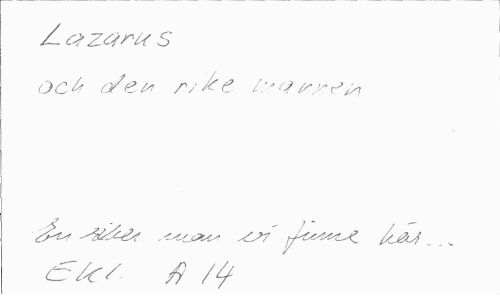 Lazarus
och den rike mannen
En riker man vi finne här...
Ekl. A 14